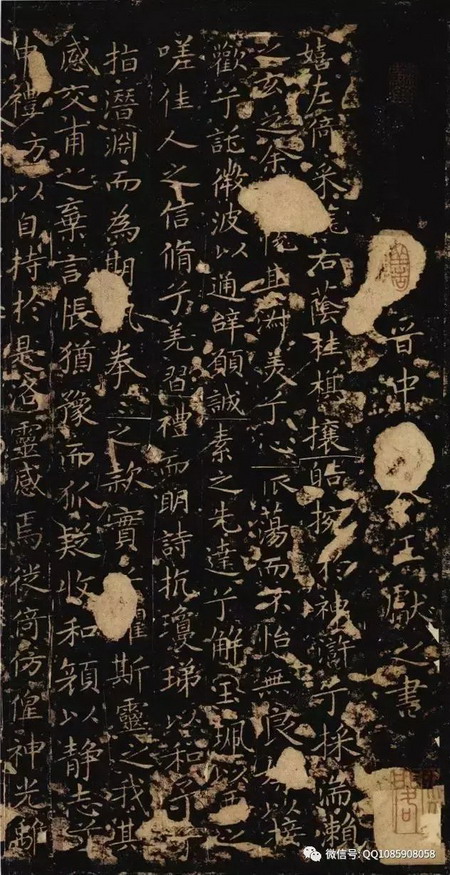 晉中令王獻之書
嬉左倚采旄右蔭桂旗攘皓捥於神滸兮採湍瀨
之玄芝余悅其淑美兮心振蕩而不怡無良媒以接
歡兮託微波以通辭願誠素之先達兮解玉珮以要之
嗟佳人之信脩兮羌習禮而明詩抗瓊珶以和予兮
指潛淵而為期執拳之款實懼斯靈之我其
感交甫之棄言悵猶豫而狐疑收和顏以靜志兮
申禮方以自持於是洛靈感焉徙倚仿偟神光離
微信号: QQ1085908058